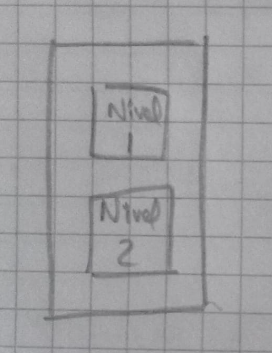 Nivel
1
Nivel
2